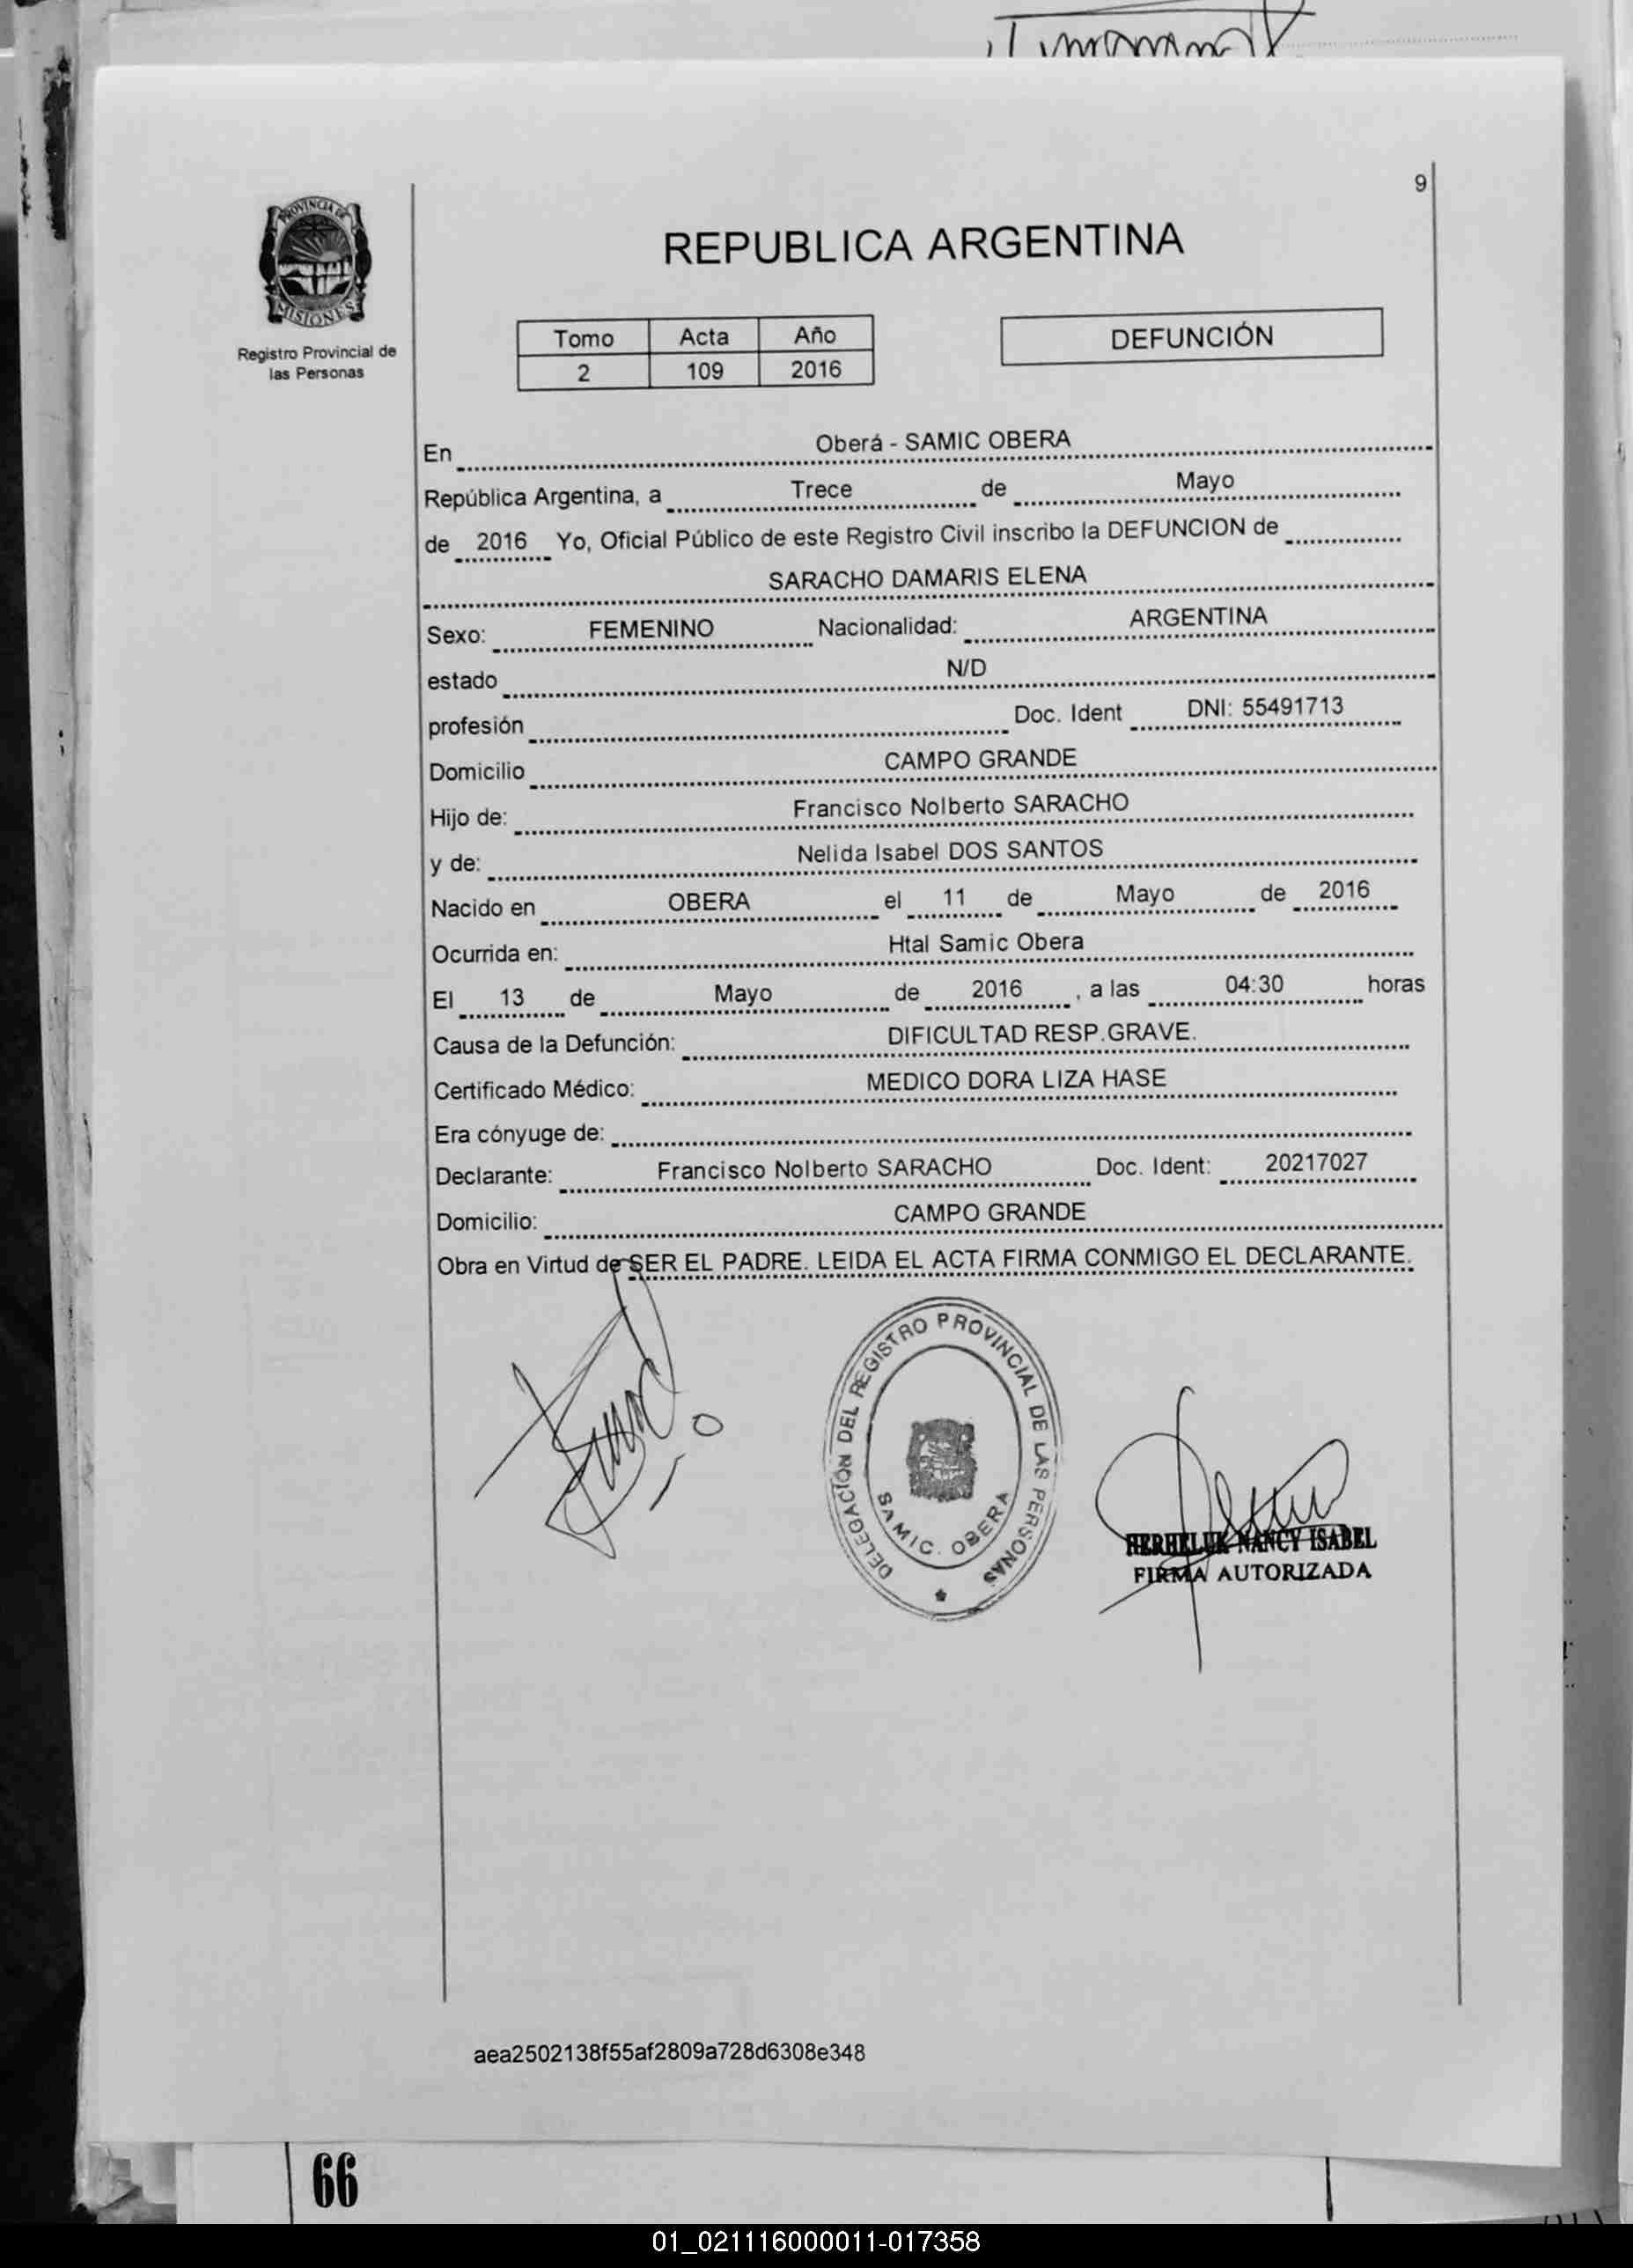 9
PROVINCIA DE
MISIONES
Registro Provincial de
las Personas
REPUBLICA ARGENTINA
Tomo Acta Año
2 109 2016
DEFUNCIÓN
En Oberá - SAMIC OBERA
República Argentina, a Trece de Mayo
de 2016 Yo, Oficial Público de este Registro Civil inscribo la DEFUNCION de
SARACHO DAMARIS ELENA
Sexo: FEMENINO Nacionalidad: ARGENTINA
estado N/D
profesión Doc. Ident DNI: 55491713
Domicilio CAMPO GRANDE
Hijo de: Francisco Nolberto SARACHO
y de: Nelida Isabel DOS SANTOS
Nacido en OBERA el 11 de Mayo de 2016
Ocurrida en: Htal Samic Obera
El 13 de Mayo de 2016 , a las 04:30 horas
Causa de la Defunción: DIFICULTAD RESP.GRAVE.
Certificado Médico: MEDICO DORA LIZA HASE
Era cónyuge de:
Declarante: Francisco Nolberto SARACHO Doc. Ident: 20217027
Domicilio: CAMPO GRANDE
Obra en Virtud de SER EL PADRE. LEIDA EL ACTA FIRMA CONMIGO EL DECLARANTE.
DELEGACIÓN DEL REGISTRO PROVINCIAL DE LAS PERSONAS
SAMIC. OBERA
HERHELUK NANCY ISABEL
FIRMA AUTORIZADA
aea2502138f55af2809a728d6308e348
66
01_021116000011-017358